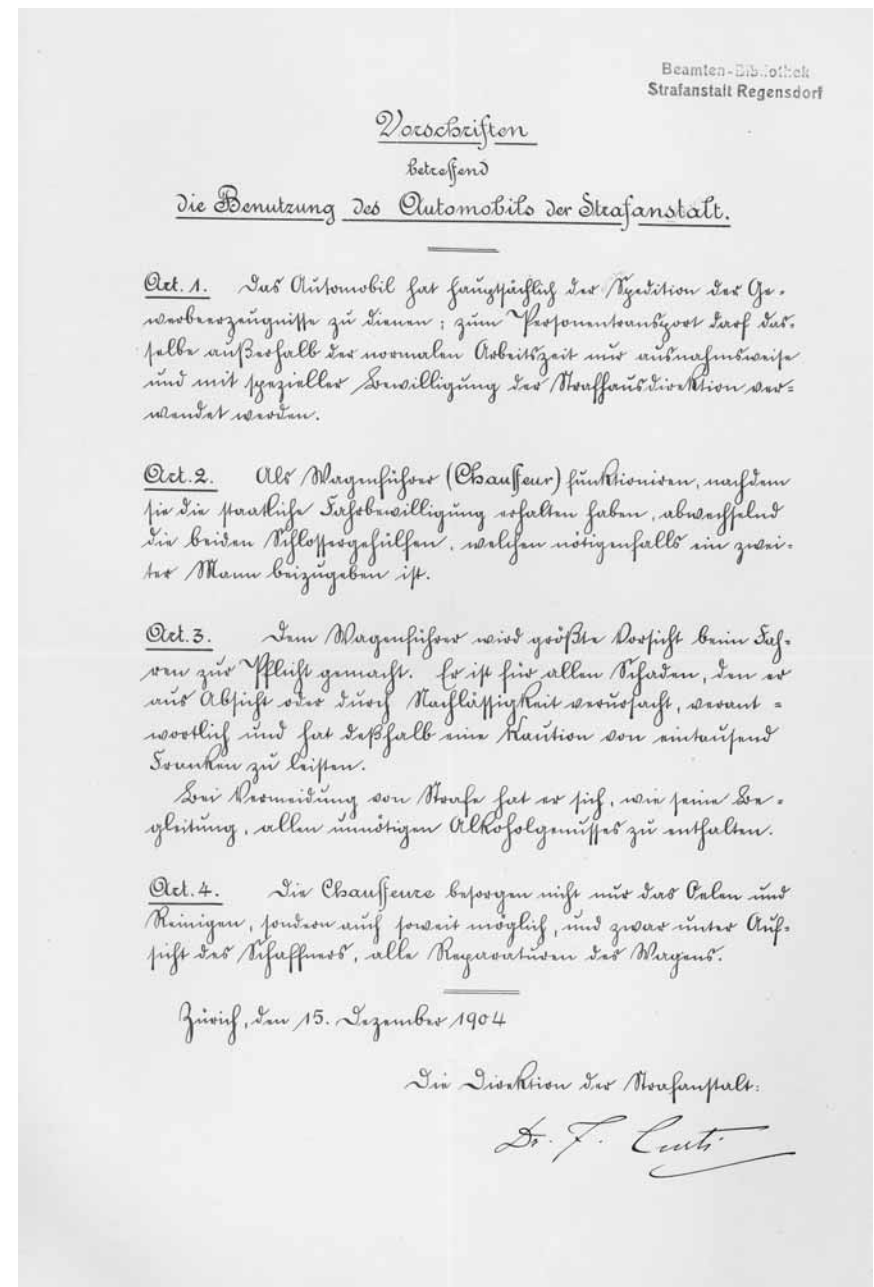 Beamten-Bibliothek
Strafanstalt Regensdorf
Vorschriften
betreffend
die Benutzung des Automobils der Strafanstalt.
Art. 1. Das Automobil hat hauptsächlich der Spedition der Ge-
werbeerzeugnisse zu dienen; zum Personentransport darf das-
selbe außerhalb der normalen Arbeitszeit nur ausnahmsweise
und mit spezieller Bewilligung der Strafhausdirektion ver-
wendet werden.
Art. 2. Als Wagenführer (Chauffeur) funktioniren, nachdem
sie die staatliche Fahrbewilligung erhalten haben, abwechselnd
die beiden Schlossergehülfen, welchen nötigenfalls ein zwei-
ter Mann beizugeben ist.
Art. 3. Dem Wagenführer wird größte Vorsicht beim Fah-
ren zur Pflicht gemacht. Er ist für allen Schaden, den er
aus Absicht oder durch Nachlässigkeit verursacht, verant-
wortlich und hat deßhalb eine Kaution von eintausend
Franken zu leisten.
Bei Vermeidung von Strafe hat er sich, wie seine Be-
gleitung, allen unnötigen Alkoholgenusses zu enthalten.
Art. 4. Die Chauffeure besorgen nicht nur das Oelen und
Reinigen, sondern auch soweit möglich, und zwar unter Auf-
sicht des Schaffners, alle Reparaturen des Wagens.
Zürich, den 15. Dezember 1904
Die Direktion der Strafanstalt:
Dr. F. Curti